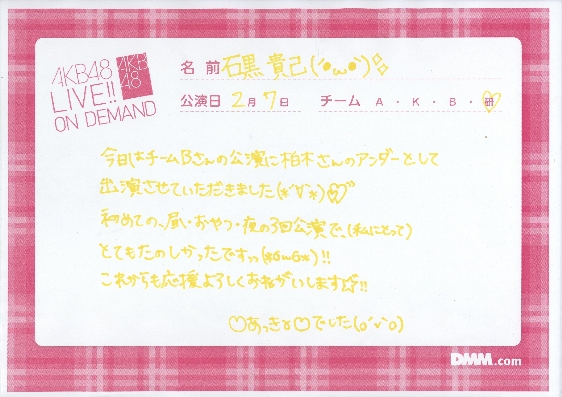 AKB48
LIVE!!
ON DEMAND
AKB
48
名前 石黒 貴己(´•ω•`)
公演日 2月7日 チーム A・K・B・研♡
今日はチームBさんの公演に柏木さんのアンダーとして
出演させていただきました(*´∀`*)♡
初めての、昼・おやつ・夜の3回公演で、(私にとって)
とてもたのしかったですっ(*6ω6*)!!
これからも応援よろしくおねがいします☆!!
♡あっきょ♡でした(o´v`o)
DMM.com